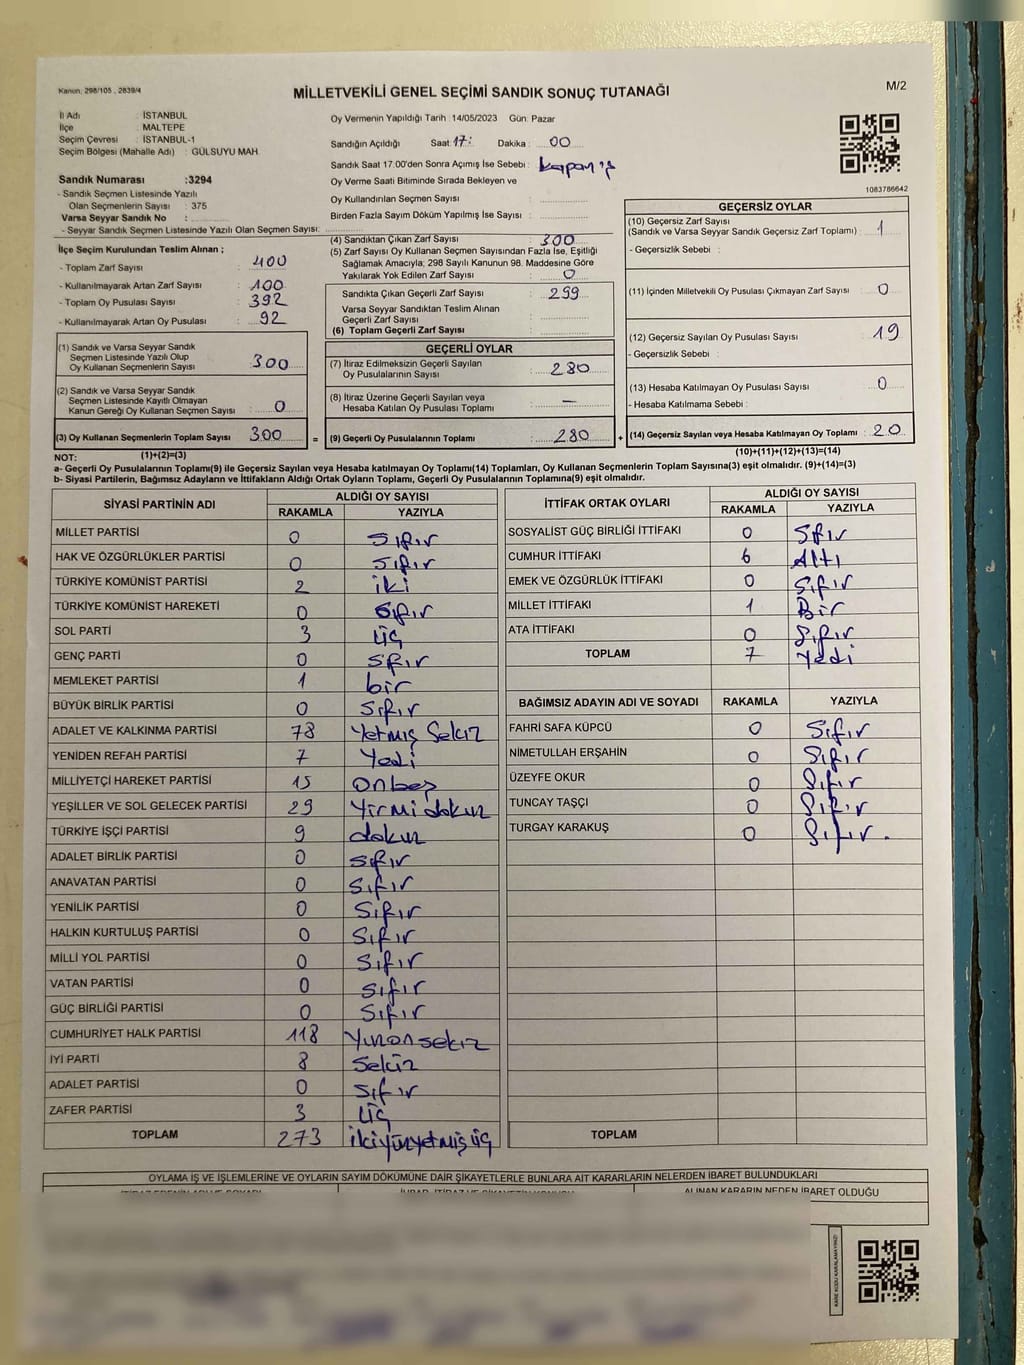 Kanun: 298/105 , 2839/4
MİLLETVEKİLİ GENEL SEÇİMİ SANDIK SONUÇ TUTANAĞI
M/2
İl Adı : İSTANBUL
İlçe : MALTEPE
Seçim Çevresi : İSTANBUL-1
Seçim Bölgesi (Mahalle Adı) : GÜLSUYU MAH.
Sandık Numarası :3294
- Sandık Seçmen Listesinde Yazılı
Olan Seçmenlerin Sayısı : 375
Varsa Seyyar Sandık No :
- Seyyar Sandık Seçmen Listesinde Yazılı Olan Seçmen Sayısı:
Oy Vermenin Yapıldığı Tarih :14/05/2023 Gün: Pazar
Sandığın Açıldığı Saat: 17: Dakika : 00
Sandık Saat 17:00'den Sonra Açımış İse Sebebi :
Oy Verme Saati Bitiminde Sırada Bekleyen ve
Oy Kullandırılan Seçmen Sayısı :
Birden Fazla Sayım Döküm Yapılmış İse Sayısı :
1083786642
İlçe Seçim Kurulundan Teslim Alınan ;
- Toplam Zarf Sayısı : 400
- Kullanılmayarak Artan Zarf Sayısı : 100
- Toplam Oy Pusulası Sayısı : 392
- Kullanılmayarak Artan Oy Pusulası : 92
(1) Sandık ve Varsa Seyyar Sandık
Seçmen Listesinde Yazılı Olup
Oy Kullanan Seçmenlerin Sayısı : 300
(2) Sandık ve Varsa Seyyar Sandık
Seçmen Listesinde Kayıtlı Olmayan
Kanun Gereği Oy Kullanan Seçmen Sayısı : 0
(3) Oy Kullanan Seçmenlerin Toplam Sayısı : 300 =
(4) Sandıktan Çıkan Zarf Sayısı : 300
(5) Zarf Sayısı Oy Kullanan Seçmen Sayısından Fazla İse, Eşitliği
Sağlamak Amacıyla; 298 Sayılı Kanunun 98. Maddesine Göre
Yakılarak Yok Edilen Zarf Sayısı : 0
Sandıkta Çıkan Geçerli Zarf Sayısı : 299
Varsa Seyyar Sandıktan Teslim Alınan
Geçerli Zarf Sayısı :
(6) Toplam Geçerli Zarf Sayısı :
GEÇERLİ OYLAR
(7) İtiraz Edilmeksizin Geçerli Sayılan
Oy Pusulalarının Sayısı : 280
(8) İtiraz Üzerine Geçerli Sayılan veya
Hesaba Katılan Oy Pusulası Toplamı : –
(9) Geçerli Oy Pusulalarının Toplamı : 280 +
GEÇERSİZ OYLAR
(10) Geçersiz Zarf Sayısı
(Sandık ve Varsa Seyyar Sandık Geçersiz Zarf Toplamı) : 1
- Geçersizlik Sebebi :
(11) İçinden Milletvekili Oy Pusulası Çıkmayan Zarf Sayısı : 0
(12) Geçersiz Sayılan Oy Pusulası Sayısı : 19
- Geçersizlik Sebebi :
(13) Hesaba Katılmayan Oy Pusulası Sayısı : 0
- Hesaba Katılmama Sebebi :
(14) Geçersiz Sayılan veya Hesaba Katılmayan Oy Toplamı : 20
NOT: (1)+(2)=(3) (10)+(11)+(12)+(13)=(14)
a- Geçerli Oy Pusulalarının Toplamı(9) ile Geçersiz Sayılan veya Hesaba katılmayan Oy Toplamı(14) Toplamları, Oy Kullanan Seçmenlerin Toplam Sayısına(3) eşit olmalıdır. (9)+(14)=(3)
b- Siyasi Partilerin, Bağımsız Adayların ve İttifakların Aldığı Ortak Oyların Toplamı, Geçerli Oy Pusulalarının Toplamına(9) eşit olmalıdır.
SİYASİ PARTİNİN ADI ALDIĞI OY SAYISI
RAKAMLA YAZIYLA
MİLLET PARTİSİ 0 Sıfır
HAK VE ÖZGÜRLÜKLER PARTİSİ 0 Sıfır
TÜRKİYE KOMÜNİST PARTİSİ 2 iki
TÜRKİYE KOMÜNİST HAREKETİ 0 Sıfır
SOL PARTİ 3 üç
GENÇ PARTİ 0 Sıfır
MEMLEKET PARTİSİ 1 bir
BÜYÜK BİRLİK PARTİSİ 0 Sıfır
ADALET VE KALKINMA PARTİSİ 78 Yetmiş Sekiz
YENİDEN REFAH PARTİSİ 7 Yedi
MİLLİYETÇİ HAREKET PARTİSİ 15 Onbeş
YEŞİLLER VE SOL GELECEK PARTİSİ 29 Yirmidokuz
TÜRKİYE İŞÇİ PARTİSİ 9 dokuz
ADALET BİRLİK PARTİSİ 0 Sıfır
ANAVATAN PARTİSİ 0 Sıfır
YENİLİK PARTİSİ 0 Sıfır
HALKIN KURTULUŞ PARTİSİ 0 Sıfır
MİLLİ YOL PARTİSİ 0 Sıfır
VATAN PARTİSİ 0 Sıfır
GÜÇ BİRLİĞİ PARTİSİ 0 Sıfır
CUMHURİYET HALK PARTİSİ 118 Yüzonsekiz
İYİ PARTİ 8 Sekiz
ADALET PARTİSİ 0 Sıfır
ZAFER PARTİSİ 3 üç
TOPLAM 273 ikiyüzyetmişüç
İTTİFAK ORTAK OYLARI ALDIĞI OY SAYISI
RAKAMLA YAZIYLA
SOSYALİST GÜÇ BİRLİĞİ İTTİFAKI 0 Sıfır
CUMHUR İTTİFAKI 6 Altı
EMEK VE ÖZGÜRLÜK İTTİFAKI 0 Sıfır
MİLLET İTTİFAKI 1 Bir
ATA İTTİFAKI 0 Sıfır
TOPLAM 7 Yedi
BAĞIMSIZ ADAYIN ADI VE SOYADI RAKAMLA YAZIYLA
FAHRİ SAFA KÜPCÜ 0 Sıfır
NİMETULLAH ERŞAHİN 0 Sıfır
ÜZEYFE OKUR 0 Sıfır
TUNCAY TAŞÇI 0 Sıfır
TURGAY KARAKUŞ 0 Sıfır.
TOPLAM
OYLAMA İŞ VE İŞLEMLERİNE VE OYLARIN SAYIM DÖKÜMÜNE DAİR ŞİKAYETLERLE BUNLARA AİT KARARLARIN NELERDEN İBARET BULUNDUKLARI
ALINAN KARARIN NEDEN İBARET OLDUĞU
KARE KODU KARALAMAYINIZ!